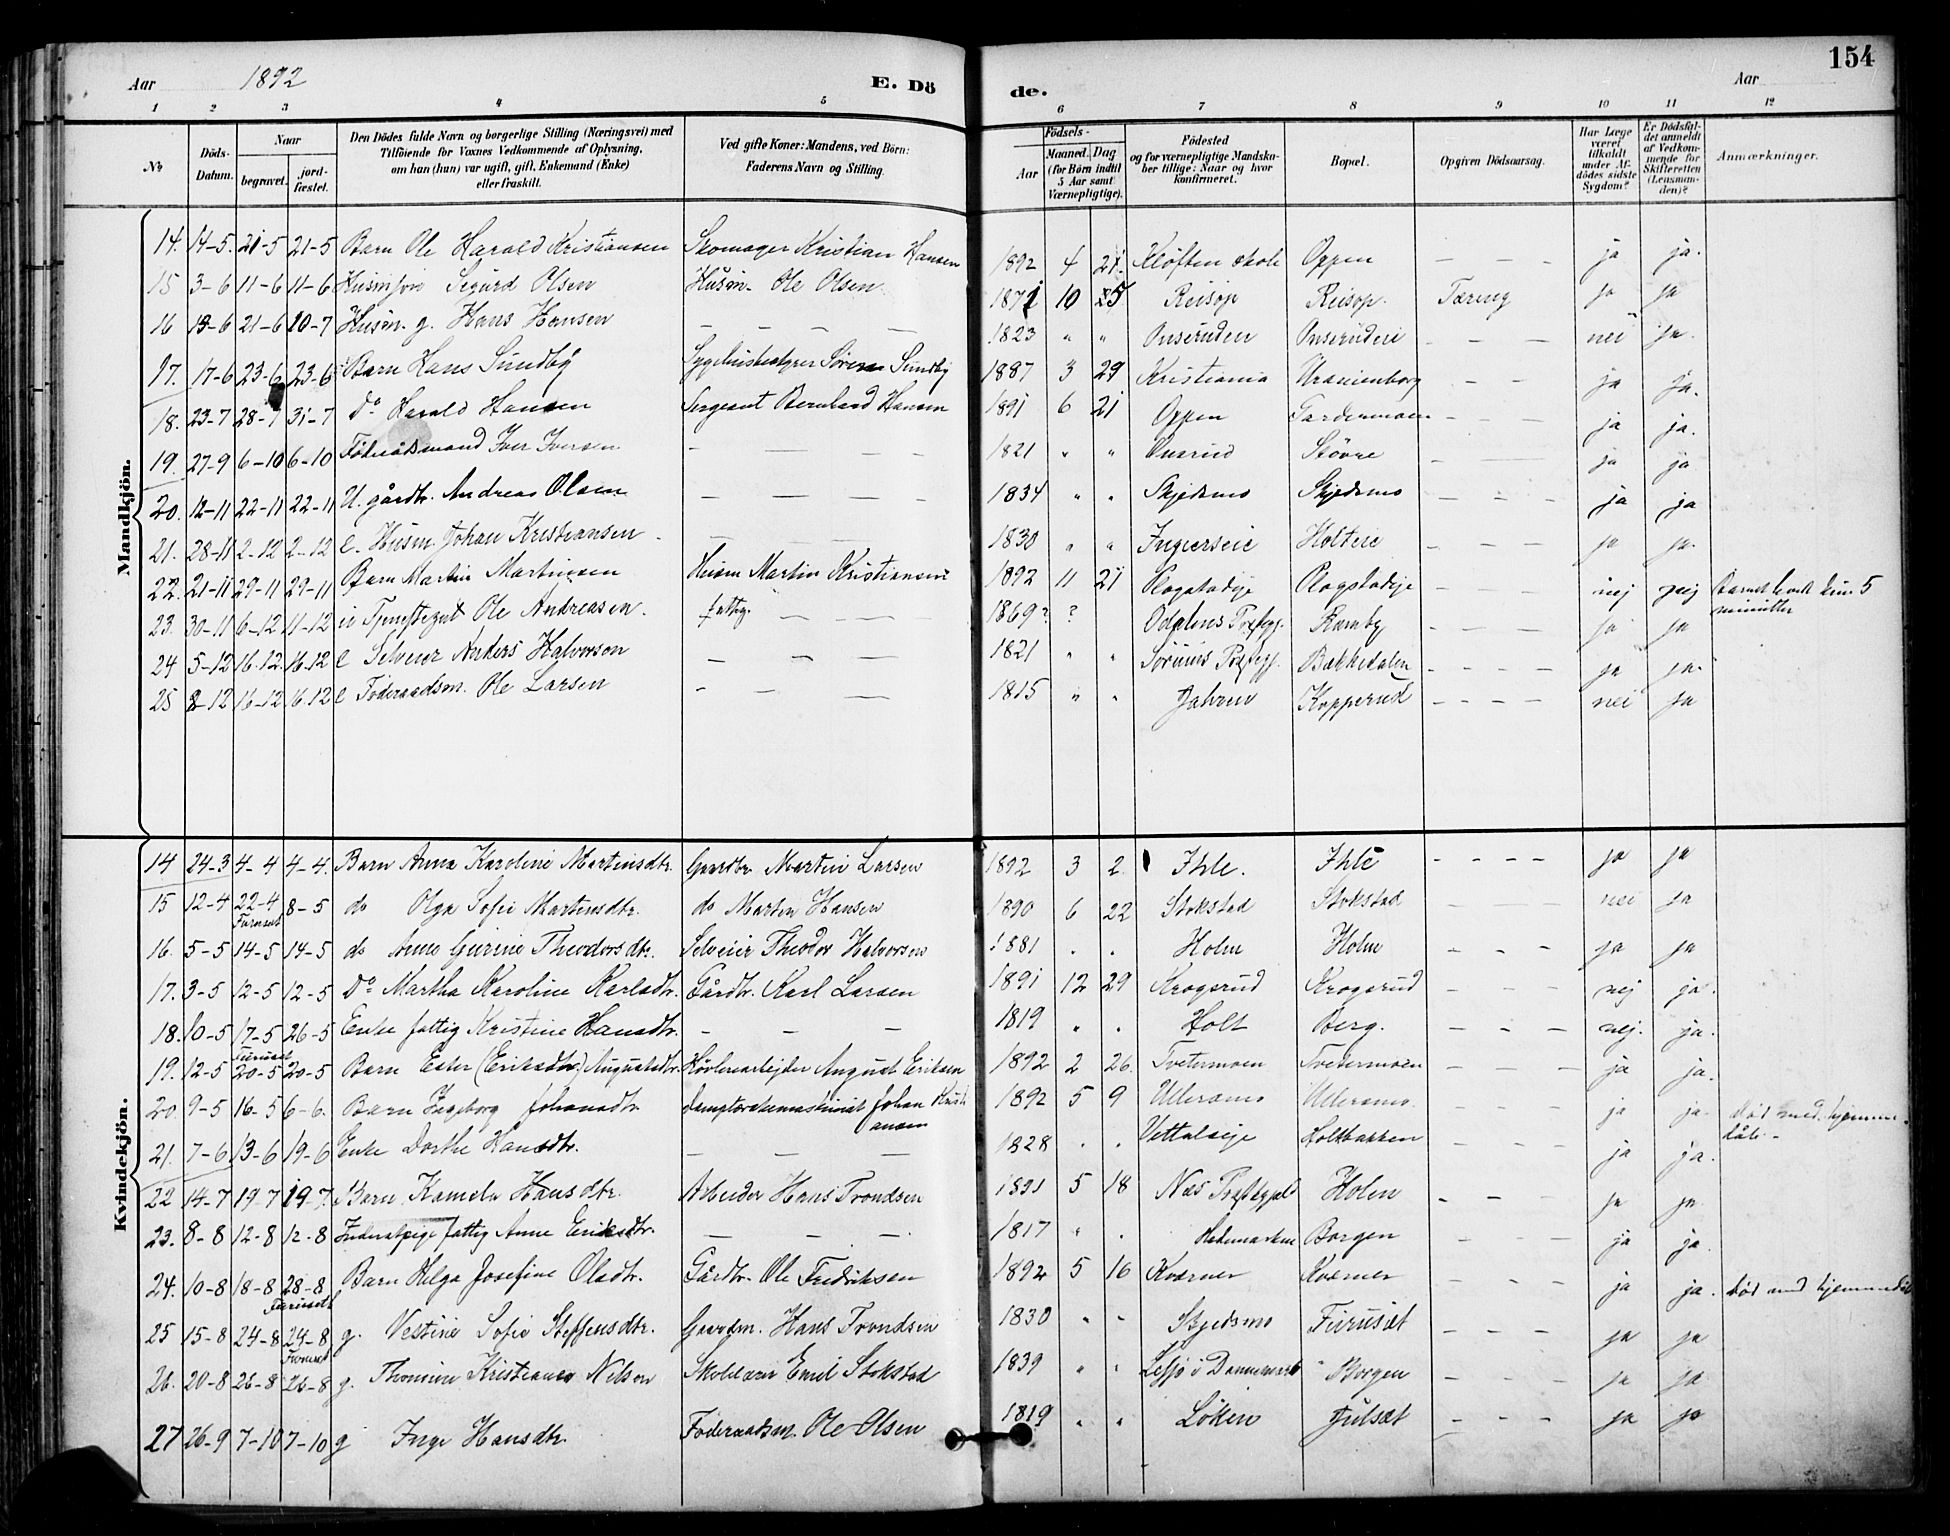 154
Aar 1892 E. Dö de. Aar
1 2 3 4 5 6 7 8 9 10 11 12
No Döds-Datum. Naar begravet. jordfæstet. Den Dödes fulde Navn og borgerlige Stilling (Næringsvei) med Tilföiende for Voxnes Vedkommende af Oplysning, om han (hun) var ugift, gift, Enkemand (Enke) eller fraskilt. Ved gifte Koner: Mandens, ved Börn: Faderens Navn og Stilling. Födsels- Aar Maaned. Dag (for Börn indtil 5 Aar samt Værnepligtige). Födested og for værnepligtige Mandskaber tillige: Naar og hvor konfirmeret. Bopæl. Opgiven Dödsaarsag. Har Læge været tilkaldt under Afdödes sidste Sygdom? Er Dödsfaldet anmeldt af Vedkommende for Skifteretten (Lensmanden)? Anmærkninger.
Mandkjön.
14. 14-5. 21-5 21-5 Barn Ole Harald Kristiansen Skomager Kristian Hansen 1892 4 21. Kløften skole Oppen — — — ja ja.
15 3-6 11-6 11-6 Husm.søn Sigurd Olsen Husm. Ole Olsen 1871 10 25 Reisop Reisop. Tæring ja ja
16 13-6 21-6 10-7 Husm. g. Hans Hansen — — — — 1823 " " Onsruden Onsruden — — — nei ja.
17. 17-6 23-6 23-6 Barn Hans Sundby Sygehusbestyrer Søren Sundby 1887 3 29 Kristiania Uranienborg — — ja ja.
18. 23-7 28-7 31-7 Do Harald Hansen Sergeant Bernhard Hansen 1891 6 21 Oppen Gardermoen — — — ja ja.
19. 27-9 6-10 6-10 Føderådsmand Iver Iversen — — — — 1821 " " Støvne — — — ja ja
20. 12-11 22-11 22-11 U. gårdbr. Andreas Olsen — — — — 1834 " " Skjedsmo Skjedsmo — — — ja ja
21. 28-11 2-12 2-12 e. Husm. Johan Kristiansen — — — 1830 " " Holteie — — — ja ja.
22. 21-11 29-11 29-11 Barn Martin Martinsen Husm Martin Kristiansen 1892 11 21 Plogstadeje Plogstadeje — nej nej Barnet levede kun 5 minutter
23. 30-11 6-12 11-12 Tjenestegut Ole Andreasen. fattig. — — 1869? ? Odalens Præstegj. Ramby — — — ja ja
24 5-12 16.12. 16.12 e Selveier Anders Halvorsen — — — 1821 " " Sørums Præstegj. Bakkedalen — — — — ja ja.
25 8-12 16-12 16.12 e Føderaadsm. Ole Larsen — — — 1815 " " Jahren Kopperud — — — — nei ja
Kvindekjön.
14 24-3 4-4 4-4. Barn Anna Karoline Martinsdtr. Gaardbr Martin Larsen 1892 3 2. Ihle. Ihle — — — — ja ja
15 12-4 22-4 Furuset 8-5 do Olga Sofie Martinsdtr. do Martin Hansen 1890 6 22 Stokstad Stokstad — — — — nei ja
16. 5-5 14-5 14-5 do Anne Gurine Theodorsdtr. Selveier Theodor Halvorsen 1881 . . Holm Holm — — — ja ja
17. 3-5 12-5 12-5 Do Martha Karoline Karlsdtr. Gårdbr. Karl Larsen 1891 12 29 Krogsrud Krogsrud — — — nej ja.
18. 10-5 17-5 26-5 Enke fattig Kristine Hansdtr. — — — 1819 " . Holt Berg. — — — nej. ja.
19. 12-5 Furuset 20-5 20-5 Barn Ester (Eriksdtr) Augustsdtr. Høvleriarbejder August Eriksen 1892 2 26. Tvetermoen Tvetermoen — — — — ja ja.
20. 9-5 16-5 6-6. Barn Ingeborg Johansdtr. Johan Kristiansen 1892 5 9 Ullersmo Ullersmo. — — — ja ja. død med hjemmedåb. -
21. 7-6 13-6 19-6 Enke Dorthe Hansdtr. — — — 1828 . . Holtbakken — — — ja ja.
22 14-7 19-7 19-7. Barn Kamela Hansdtr. Arbeider Hans Trondsen 1891 5 18 Næs Præstegjeld Holen — — — ja ja.
23. 8-8 12-8 12-8 fattig Anne Eriksdtr. — — —. 1817 " . Borgen — — — ja ja.
24. 10-8 18-8 28-8 Barn Helga Josefine Olsdtr. Gårdbr. Ole Fredriksen 1892 5 16 Kværner Kværner — — — ja ja. død med hjemmedåb
25 15-8 24-8 Furuset 24-8 g. Vestine Sofie Steffensdtr. Gaardm. Hans Trondsen 1830 " " Skjedsmo Furusæt — — — ja ja
26. 20-8 26-8 Furuset 26-8 g. Thomine Kristiane Nilsen Skolelærer Emil Stokstad 1839 " " i Dannemark Borgen — — — ja ja
27 26-9 7-10 7-10 g Inge Hansdtr. Føderaadsm. Ole Olsen 1819 " " Løken Julsæt — — — ja ja